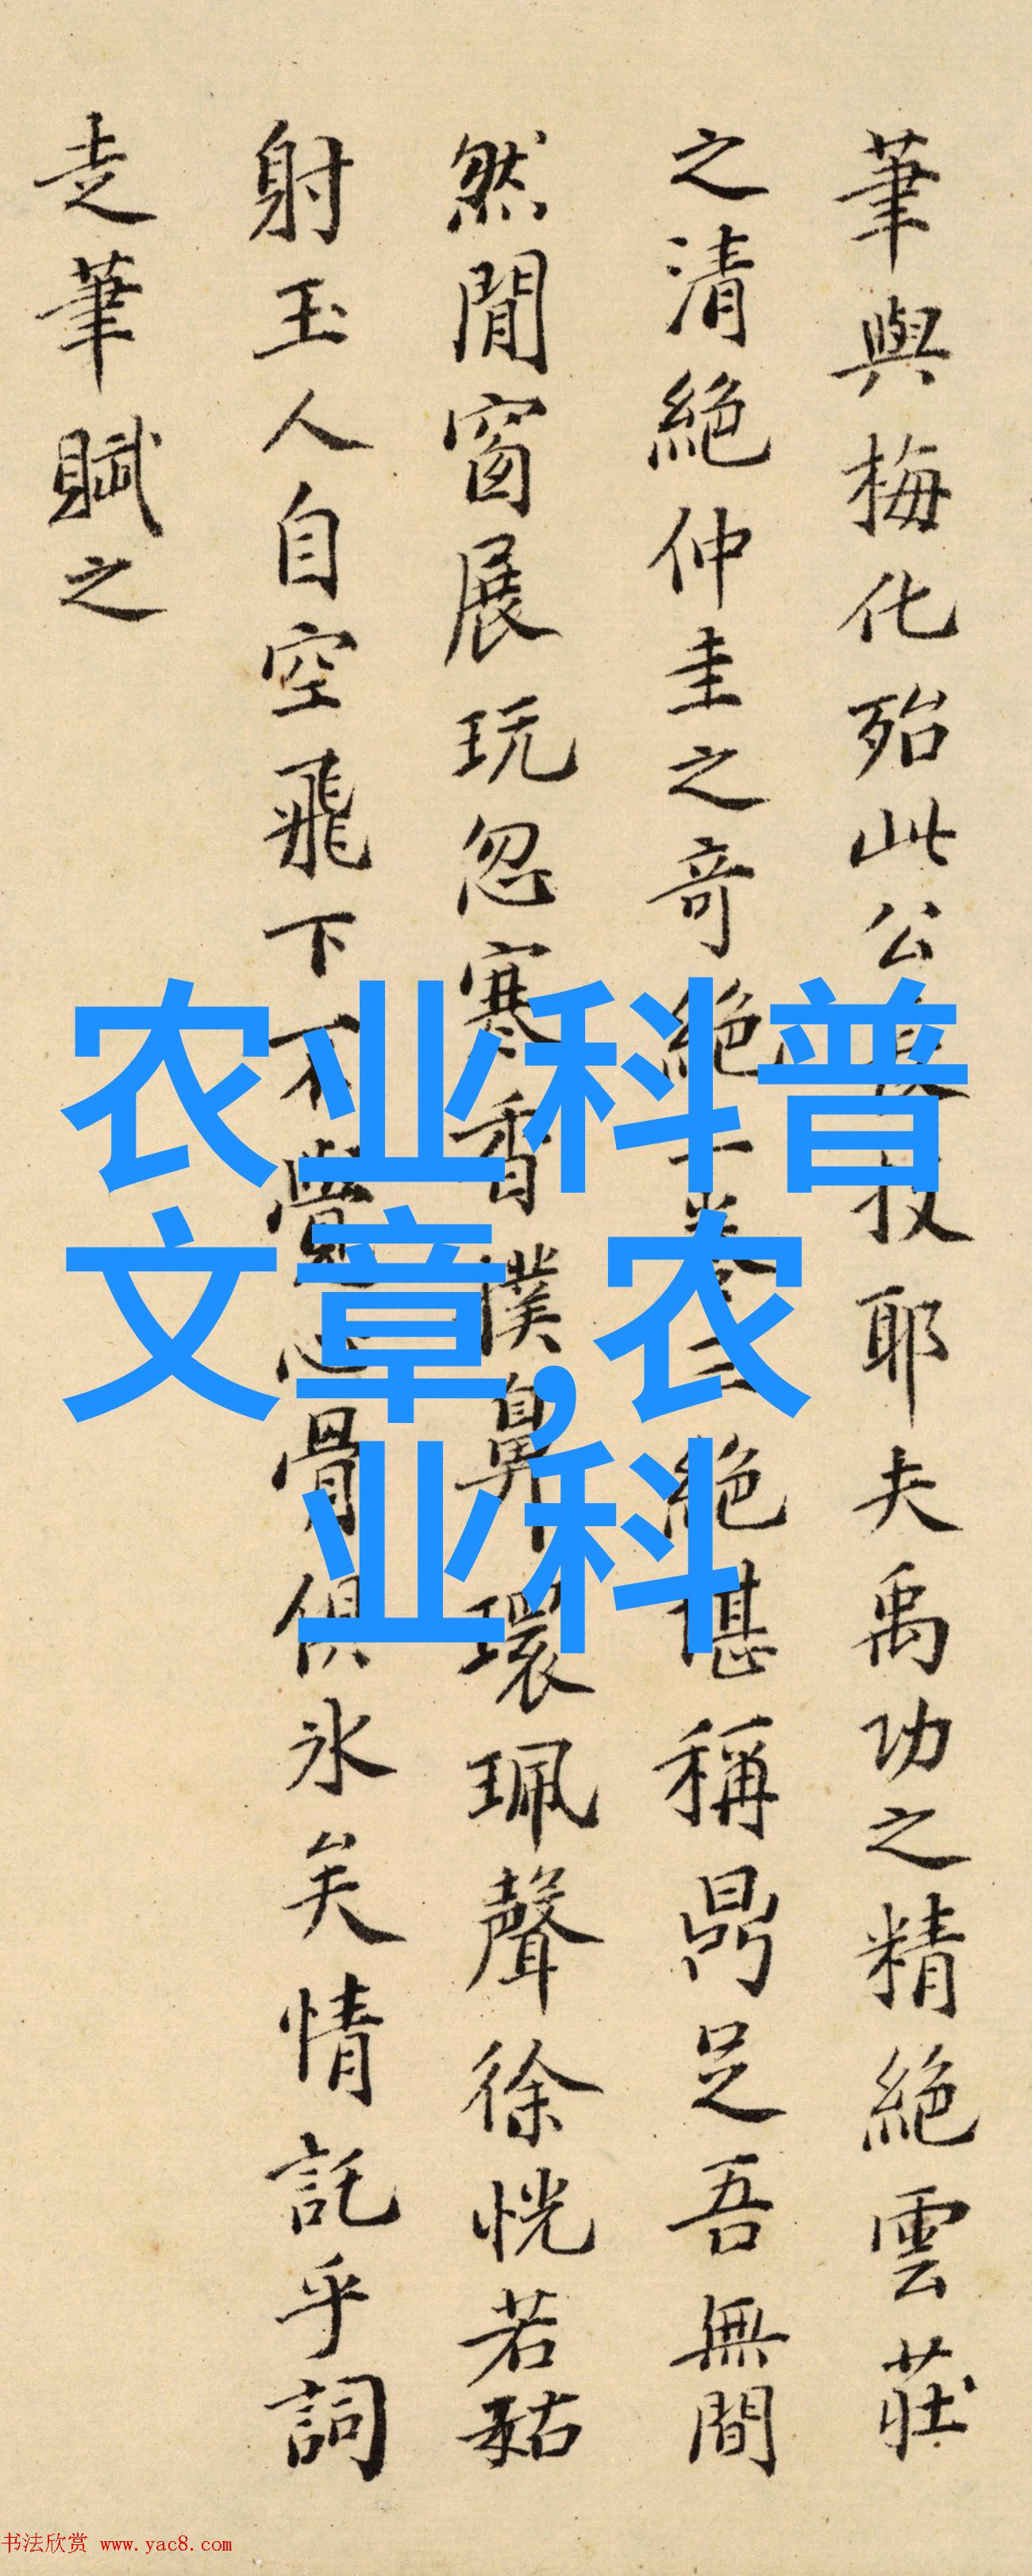 筆與梅化殆此公技耶夫禹功之精絕雲莊
之清絕仲圭之奇絕三絕堪稱鼎足吾無間
然閒窗展玩忽寒香撲鼻環珮聲徐恍若菇
射玉人自空飛下不覺心骨俱氷矣情託乎詞
走筆賦之
农业科普
文章,农
业科
书法欣赏 www.yac8.com